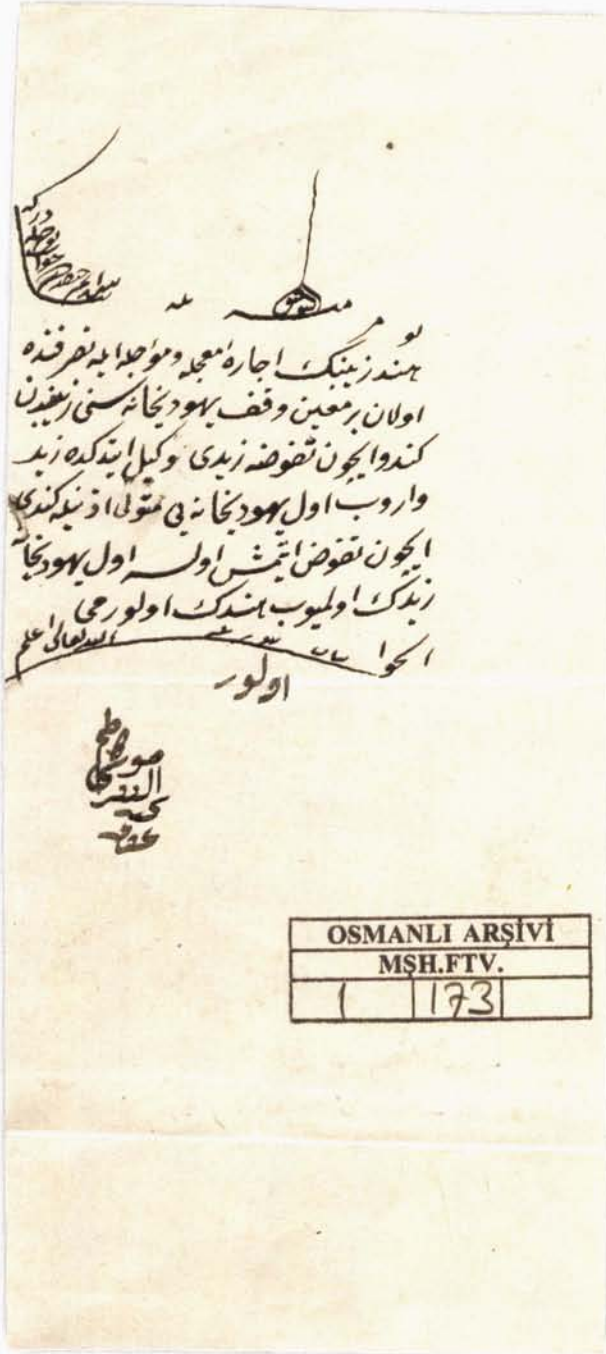 بو مسئله
هند زینبك اجارۀ معجله ومؤجله ایله تصرفنده
اولان بر معین وقف یهودیخانه سنی زینبدن
كندو ایچون تفوضه زیدی وكیل ایتدكده زید
واروب اول یهودیخانه یی متولی اذنیله كندی
ایچون تفوض ایتمش اولسه اول یهودیخانه
زیدك اولمیوب هندك اولورمی
الجواب الله تعالی اعلم
اولور
الفقیر
OSMANLI ARŞİVİ
MŞH.FTV.
1 173